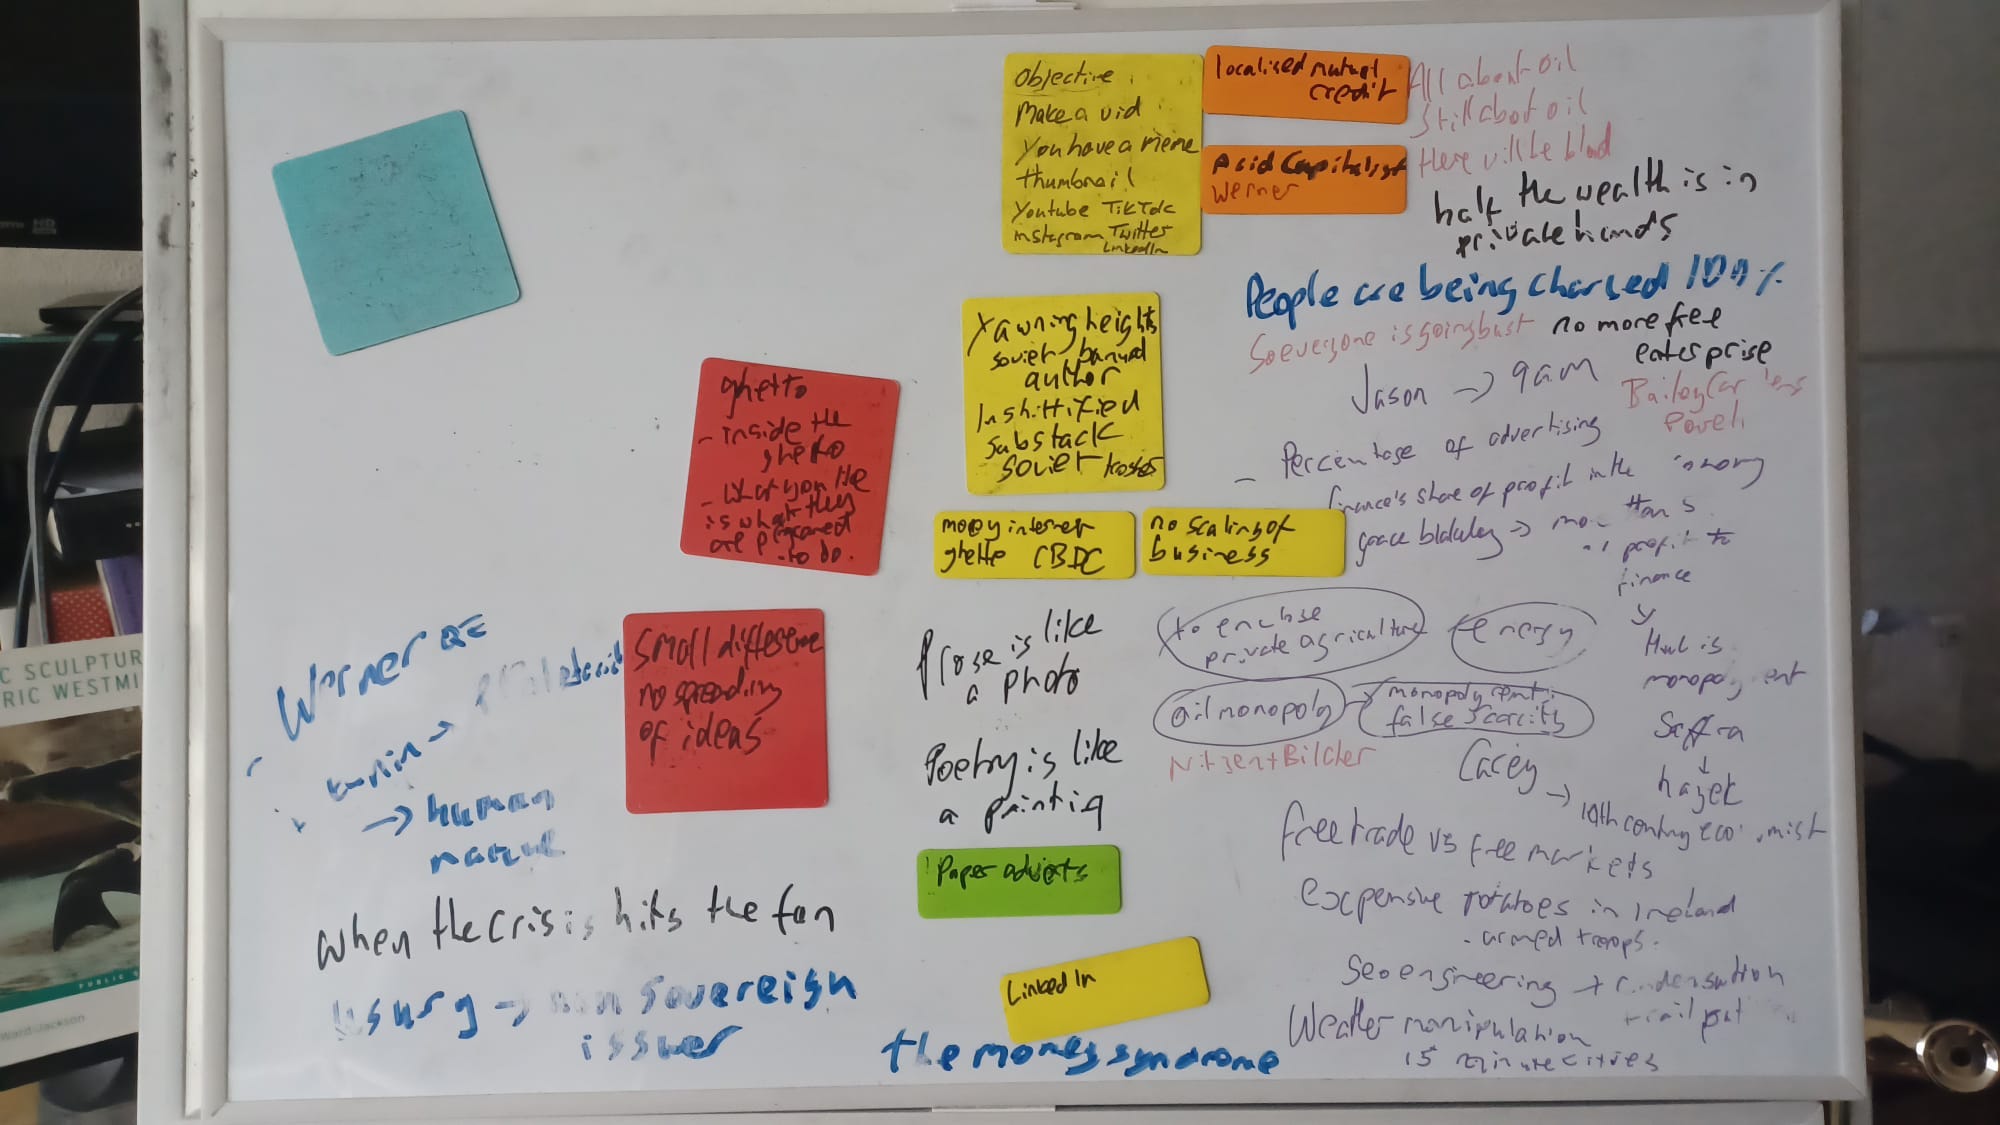 Objective
Make a vid
You have a meme
thumbnail
Youtube TikTok
instagram Twitter
LinkedIn
localised mutual
credit
Acid Capitalist
Werner
All about oil
Still about oil
There will be blood
half the wealth is in
private hands
People are being charged 100%
So everyone is going bust
no more free
enterprise
Jason → 9am
Yawning heights
soviet banned
author
Inshittified
substack
soviet
ghetto
- inside the
ghetto
- what you
is what they
are
to do.
- Percentage of advertising
finance's share of profit in the
→
profit to
finance
mopy internet
ghetto CBDC
no scaling of
business
to enclose
private agriculture
energy
oil monopoly
monopoly
false scarcity
Nitzen + Bilcher
is
monopoly
Saffra
↓
hayek
Carey
→ 19th century
free trade vs free markets
expensive potatoes in Ireland
- armed troops.
Geoengineering →
Weather manipulation
15 minute cities
Small difference
no spreading
of ideas
Prose is like
a photo
Poetry is like
a painting
Paper adverts
LinkedIn
the money syndrome
Werner QE
→ human
when the crisis hits the fan
usury → non sovereign
issuer
C SCULPTUR
RIC WESTMI
PUBLIC
Ward-Jackson